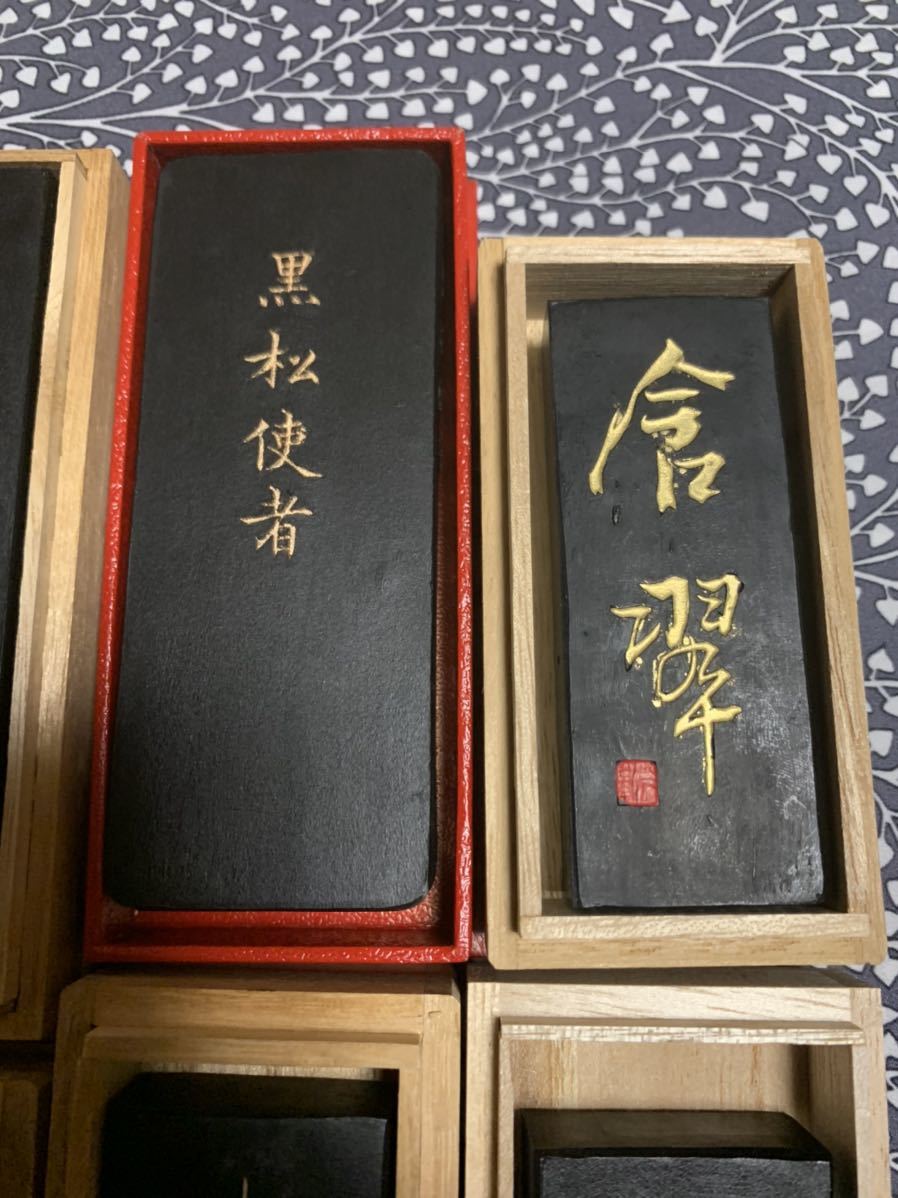 黒松使者
含翠